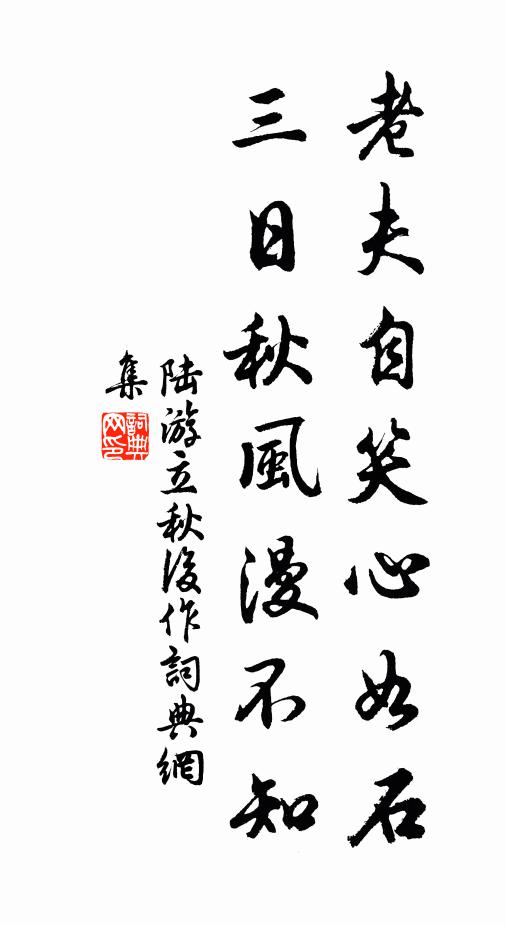 老夫自笑心如石
三日秋風漫不知
陸游立秋後作詞典網
集
詞典
网印